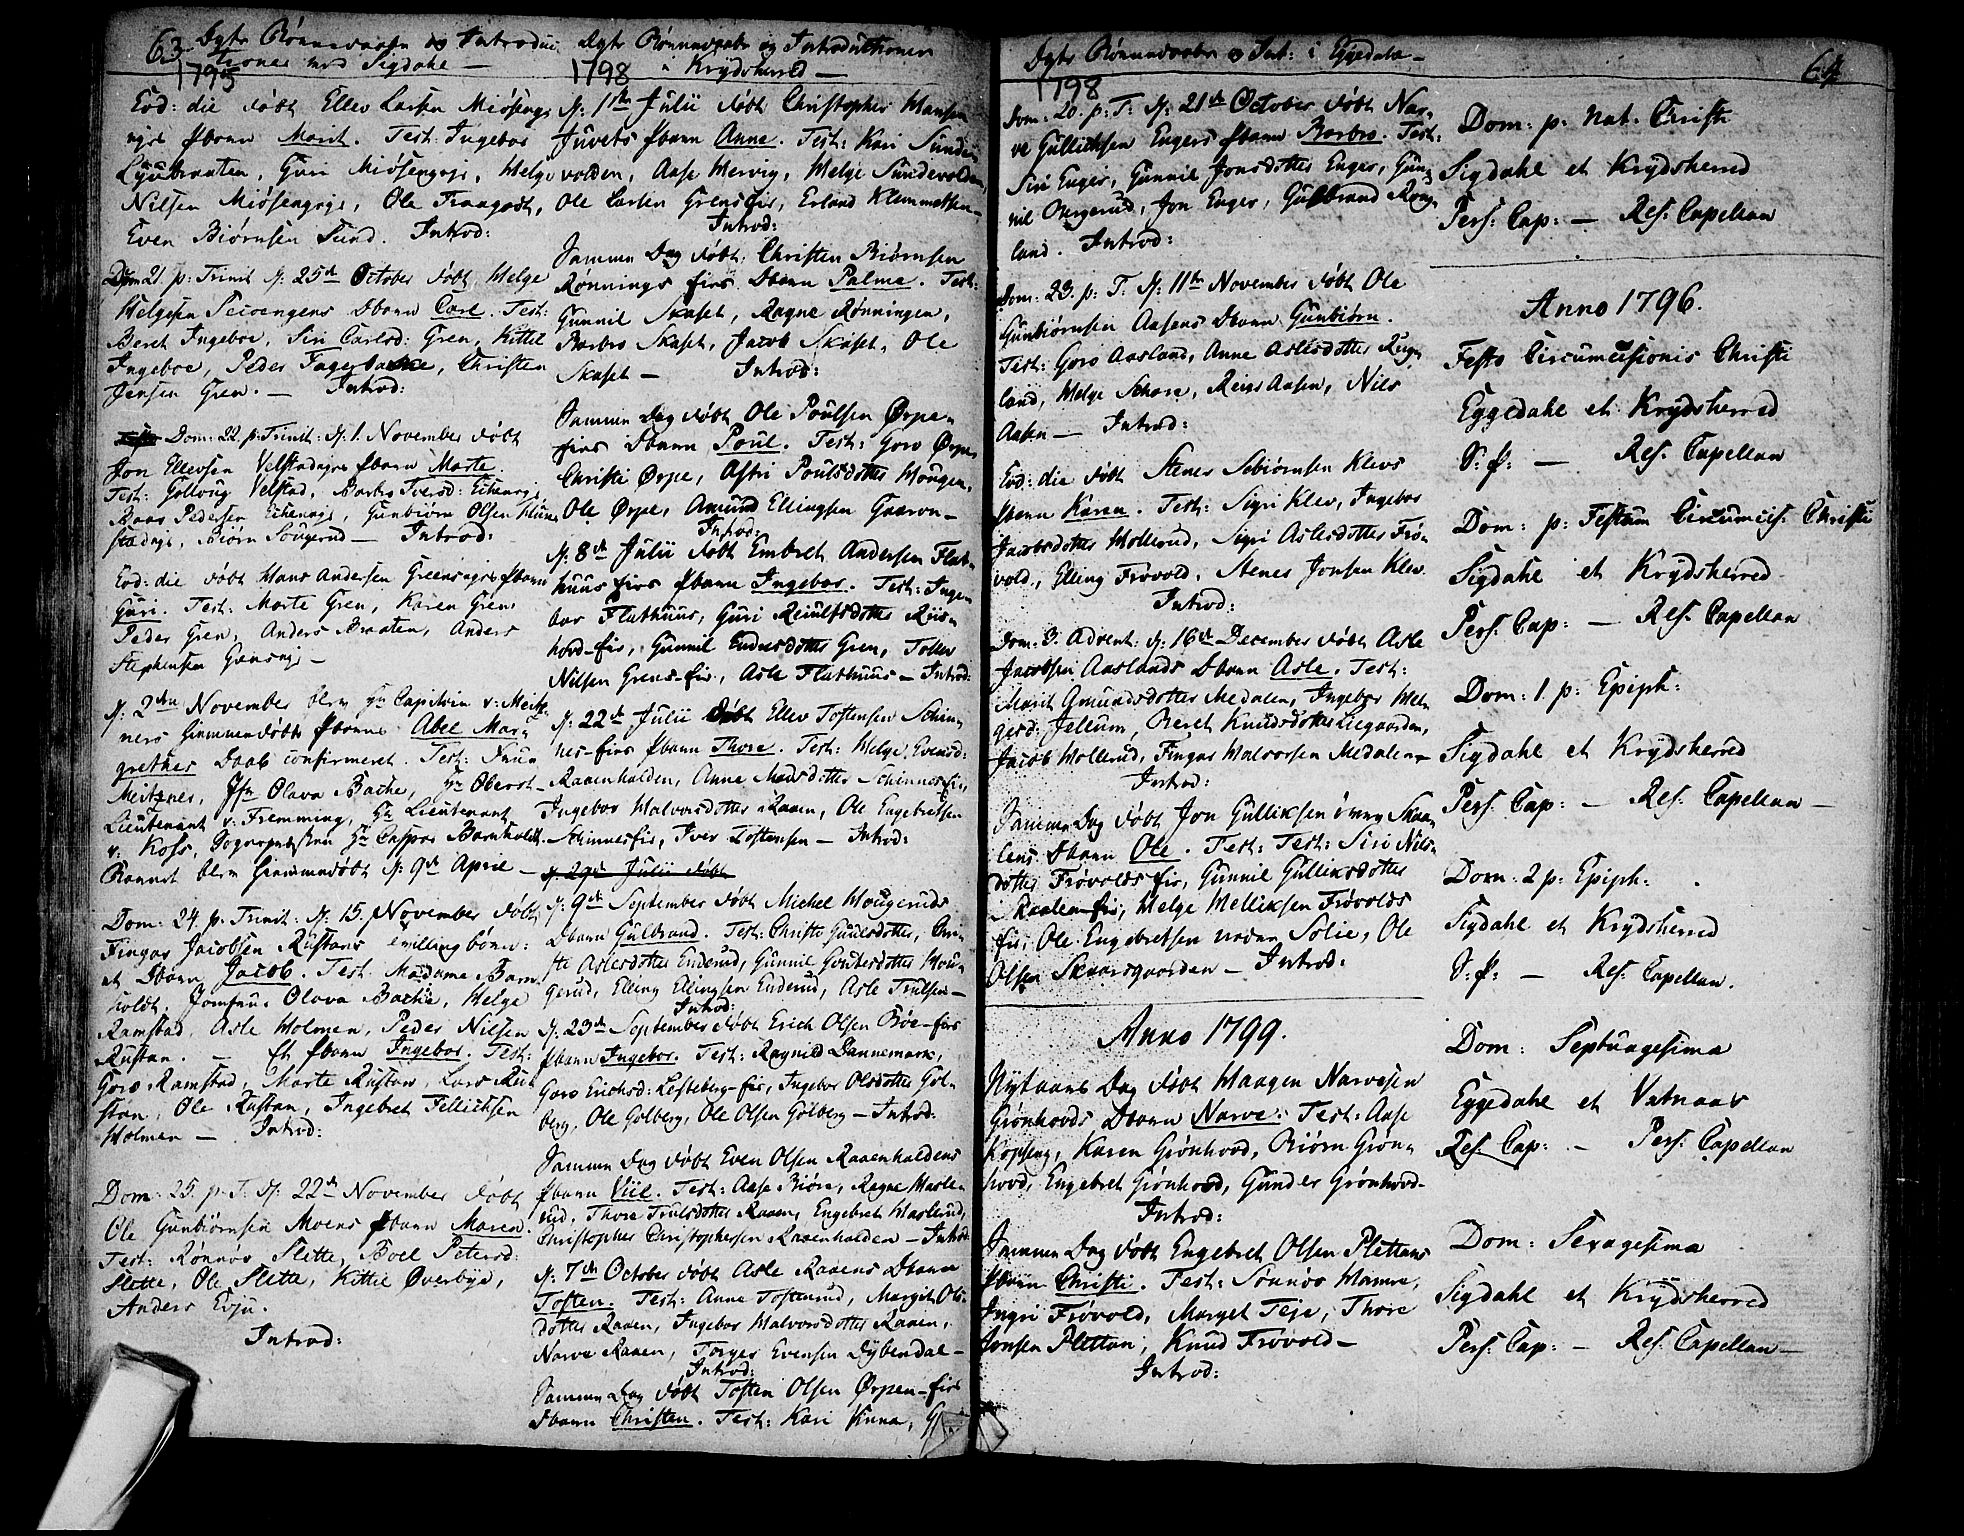 63. Dgtr Rønnevaasn og Introduc
tioner ved Sigdahl —
1795
Eod: die døbt Ellev Larsen Miøsengs
eyes Pbarn Marit. Test: Ingebor
Lÿübraaten, Guri Miøsengeje, Helge
Nilsen Miøsengeje, Ole Fraagodt,
Even Biørnsen Lund. Introd:
Dom 21. p: Trinit d: 25de October døbt Helge
Helgesen Seioengens Dbarn Carl. Test:
Beret Ingeboe, Siri Carlsd: Gren, Kittel
Ingeboe, Peder Fagerbakke, Christen
Jensen Gren. — Introd:
Dom: 22. p: Trinit: d: 1. November døbt
Jon Ellevsen Velstadeyes Pbarn Marte.
Test: Gollaug Velstad, Barbro Iversd: Eikeneje
Pedersen Eikeneje, Gunbiørn Olsen
Biørn Sougerud — Introd:
Eod: die døbt Hans Andersen Greenseyes Pbarn
Guri. Test: Marte Gren, Karen Gren
Peder Gren, Anders Braaten, Anders
Stephensen Grenseje —
d: 2den November blev Hr Capitain v: Meitz
ners hiemmedøbte Pbarns Abel Mar-
grethes Daab confirmeret. Test: Frue
Meitzner, Jfr Olava Bache, Hr Oberst-
Lieutenant v: Fremming, Hr Lieutenant
v: Koss, Sognepræsten Hr Casper Barnholdt.
Barnet blev hiemmedøbt d: 9de April —
Dom: 24. p. Trinit: d: 15. November døbt
Fingar Jacobsen Rustans tvillingbörn:
et Dbarn Jacob. Test. Madame Barn
holdt, Jomfrue Olava Bache, Helge
Ramstad, Asle Holmen, Peder Nielsen
Rustan. — Et Pbarn Ingebor. Test:
Goro Ramstad, Marte Rustan, Lars Rust
stan, Ole Rustan, Ingebret Tellichsen
Holmen — Introd:
Dom: 25. p. T. d: 22de November døbt
Ole Gunbiørnsen Moens Pbarn Maren.
Test: Rønnov Slette, Boel Petersd:
Slette, Ole Slette, Kittil Øverbye,
Anders Evju.
Introd:
Dgtr Rönnevaasn og Introductioner
i Krydsherred —
1798
d: 1ste Julii døbt Christopher Hansen
Juvets Pbarn Anne. Test: Kari Sunde-
volden, Aase Mervig, Helge Sundevolden,
Ole Larsen Grensfir, Erland Klemmetsen —
Introd:
Samme Dag døbt: Christen Biørnsen
Rønnings firs Dbarn Palme. Test:
Gunnil Skaset, Ragne Rønningen,
Barbro Skaset, Jacob Skaset, Ole
Skaset — Introd:
Samme Dag døbt Ole Poulsen Ørpe-
firs Dbarn Poul. Test: Goro Ørpe
Christi Ørpe, Astri Poulsdotter Hougen,
Ole Ørpe, Amund Ellingsen Gaaren —
Introd:
d: 8de Julii døbt Embret Andersen Flat-
huus firs Pbarn Ingebor. Test: Inge-
bor Flathuus, Guri Reiulfsdotter Riis-
hovd-fir, Gunnil Endresdotter Gren, Tollev
Nilsen Grens-fir, Asle Flathuus — Introd:
d: 22de Julii døbt Ellev Tostensen Schin-
nes-firs Pbarn Thore. Test: Helge Evensd:
Raaenhalden, Anne Madsdotter Schinnes fir,
Ingebor Halvorsdotter Raaen, Ole Engebretsen
Schinnesfir, Iver Tostensen — Introd:
d. 29de Julii døbt
d: 9de September døbt Michel Hougeruds
Dbarn Gulbrand. Test: Christi Guulsdotter, Chri-
sti Aslesdotter Enderud, Gunnil Gontesdotter Hou-
gerud, Elling Ellingsen Enderud, Asle Trulsen —
Introd:
d: 23de September døbt Erich Olsen Bøe-firs
Pbarn Ingebor. Test: Ragnild Dannemark,
Goro Erichsd: Lesteberg-fir, Ingebor Olsdotter Gol-
berg, Ole Golberg, Ole Olsen Golberg — Introd:
Samme Dag døbt Even Olsen Raaenhaldens
Pbarn Viil. Test: Aase Biøre, Ragne Hasle-
rud, Thore Trulsdotter Raaen, Engebret Haslerud,
Christopher Christophersen Raaenhalden — Introd:
d: 7de October døbt Asle Raaens Dbarn
Tosten. Test: Anne Tostenrud, Margit Ols-
dotter Raaen, Ingebor Halvorsdotter Raaen,
Narve Raaen, Torger Evensen Dybendal —
Introd:
Samme Dag døbt Tosten Olsen Ørpen-firs
Dbarn Christen. Test: Kari Kinna, G
Dgtr Rönnevaasn og Int: i Eggedal —
1798
Dom: 20. p: T: d: 21de October døbt Nar-
ve Gullichsen Engers Pbarn Barbro. Test:
Siri Enger, Gunnil Jonsdotter Enger, Gun-
nil Bergerud, Jon Enger, Gulbrand Rong-
land. Introd:
Dom: 23. p: T. d: 11te November døbt Ole
Gunbiørnsen Aasens Dbarn Gunbiørn.
Test: Goro Aasland, Anne Aslesdotter Rug-
land, Helge Schare, Reier Aasen, Nils
Aasen — Introd:
Eod: die døbt Stener Sebiørnsen Klevs
Pbarn Karen. Test: Sigri Klev, Ingebor
Jacobsdotter Hollerud, Sigri Aslesdotter Frø-
vold, Elling Frøvold, Stener Jonsen Klev.
Introd:
Dom: 3. Advent: d: 16de December døbt Asle
Jacobsen Aaslands Dbarn Asle. Test:
Marit Amundsdotter Medalen, Ingebor Hel-
gesd: Jellum, Beret Knudsdotter Liegaarden,
Jacob Hollerud, Fingar Halvorsen Medalen —
Introd:
Samme Dag døbt Jon Gulliksen övre Skaa-
lens Dbarn Ole. Test: Test: Siri Nils-
dotter Frövolds fir, Gunnil Gulliksdotter
Skaalen-fir, Helge Melliksen Frövolds
fir, Ole Engebretsen nedre Solie, Ole
Olsen Skaarsgaarden — Introd:
Anno 1799.
Nÿtaars Dag døbt Haagen Narvesen
Grønhovds Dbarn Narve. Test: Aase
Kopseng, Karen Grönhovd, Biørn Grøn-
hovd, Engebret Grønhovd, Gunder Grønhovd —
Introd:
Samme Dag døbt Engebret Olsen Plettans
Pbarn Christi. Test: Sønnøv Hamre,
Ingri Frövold, Marget Teje, Thore
Jonsen Plettan, Knud Frövold —
Introd:
64
Dom: p: Nat: Christi
Sigdahl et Krydsherred
Pers: Cap: — Res: Capellan
Anno 1796.
Festo Circumcisionis Christi
Eggedahl et Krydsherred
S: P: — Res. Capellan
Dom: p: Festum Circumcis: Christi
Sigdahl et Krydsherred
Pers: Cap: — Res. Capellan
Dom: 1. p: Epiph:
Sigdahl et Krydsherred
Pers: Cap: — Res. Capellan —
Dom: 2 p: Epiph:
Sigdahl et Krydsherred
S: P: — Res. Capellan.
Dom: Septuagesima
Eggedahl et Vatnaas
Res. Cap: — Pers. Capellan
Dom: Sexagesima
Sigdahl et Krydsherred
Pers. Cap: — Res. Capellan —